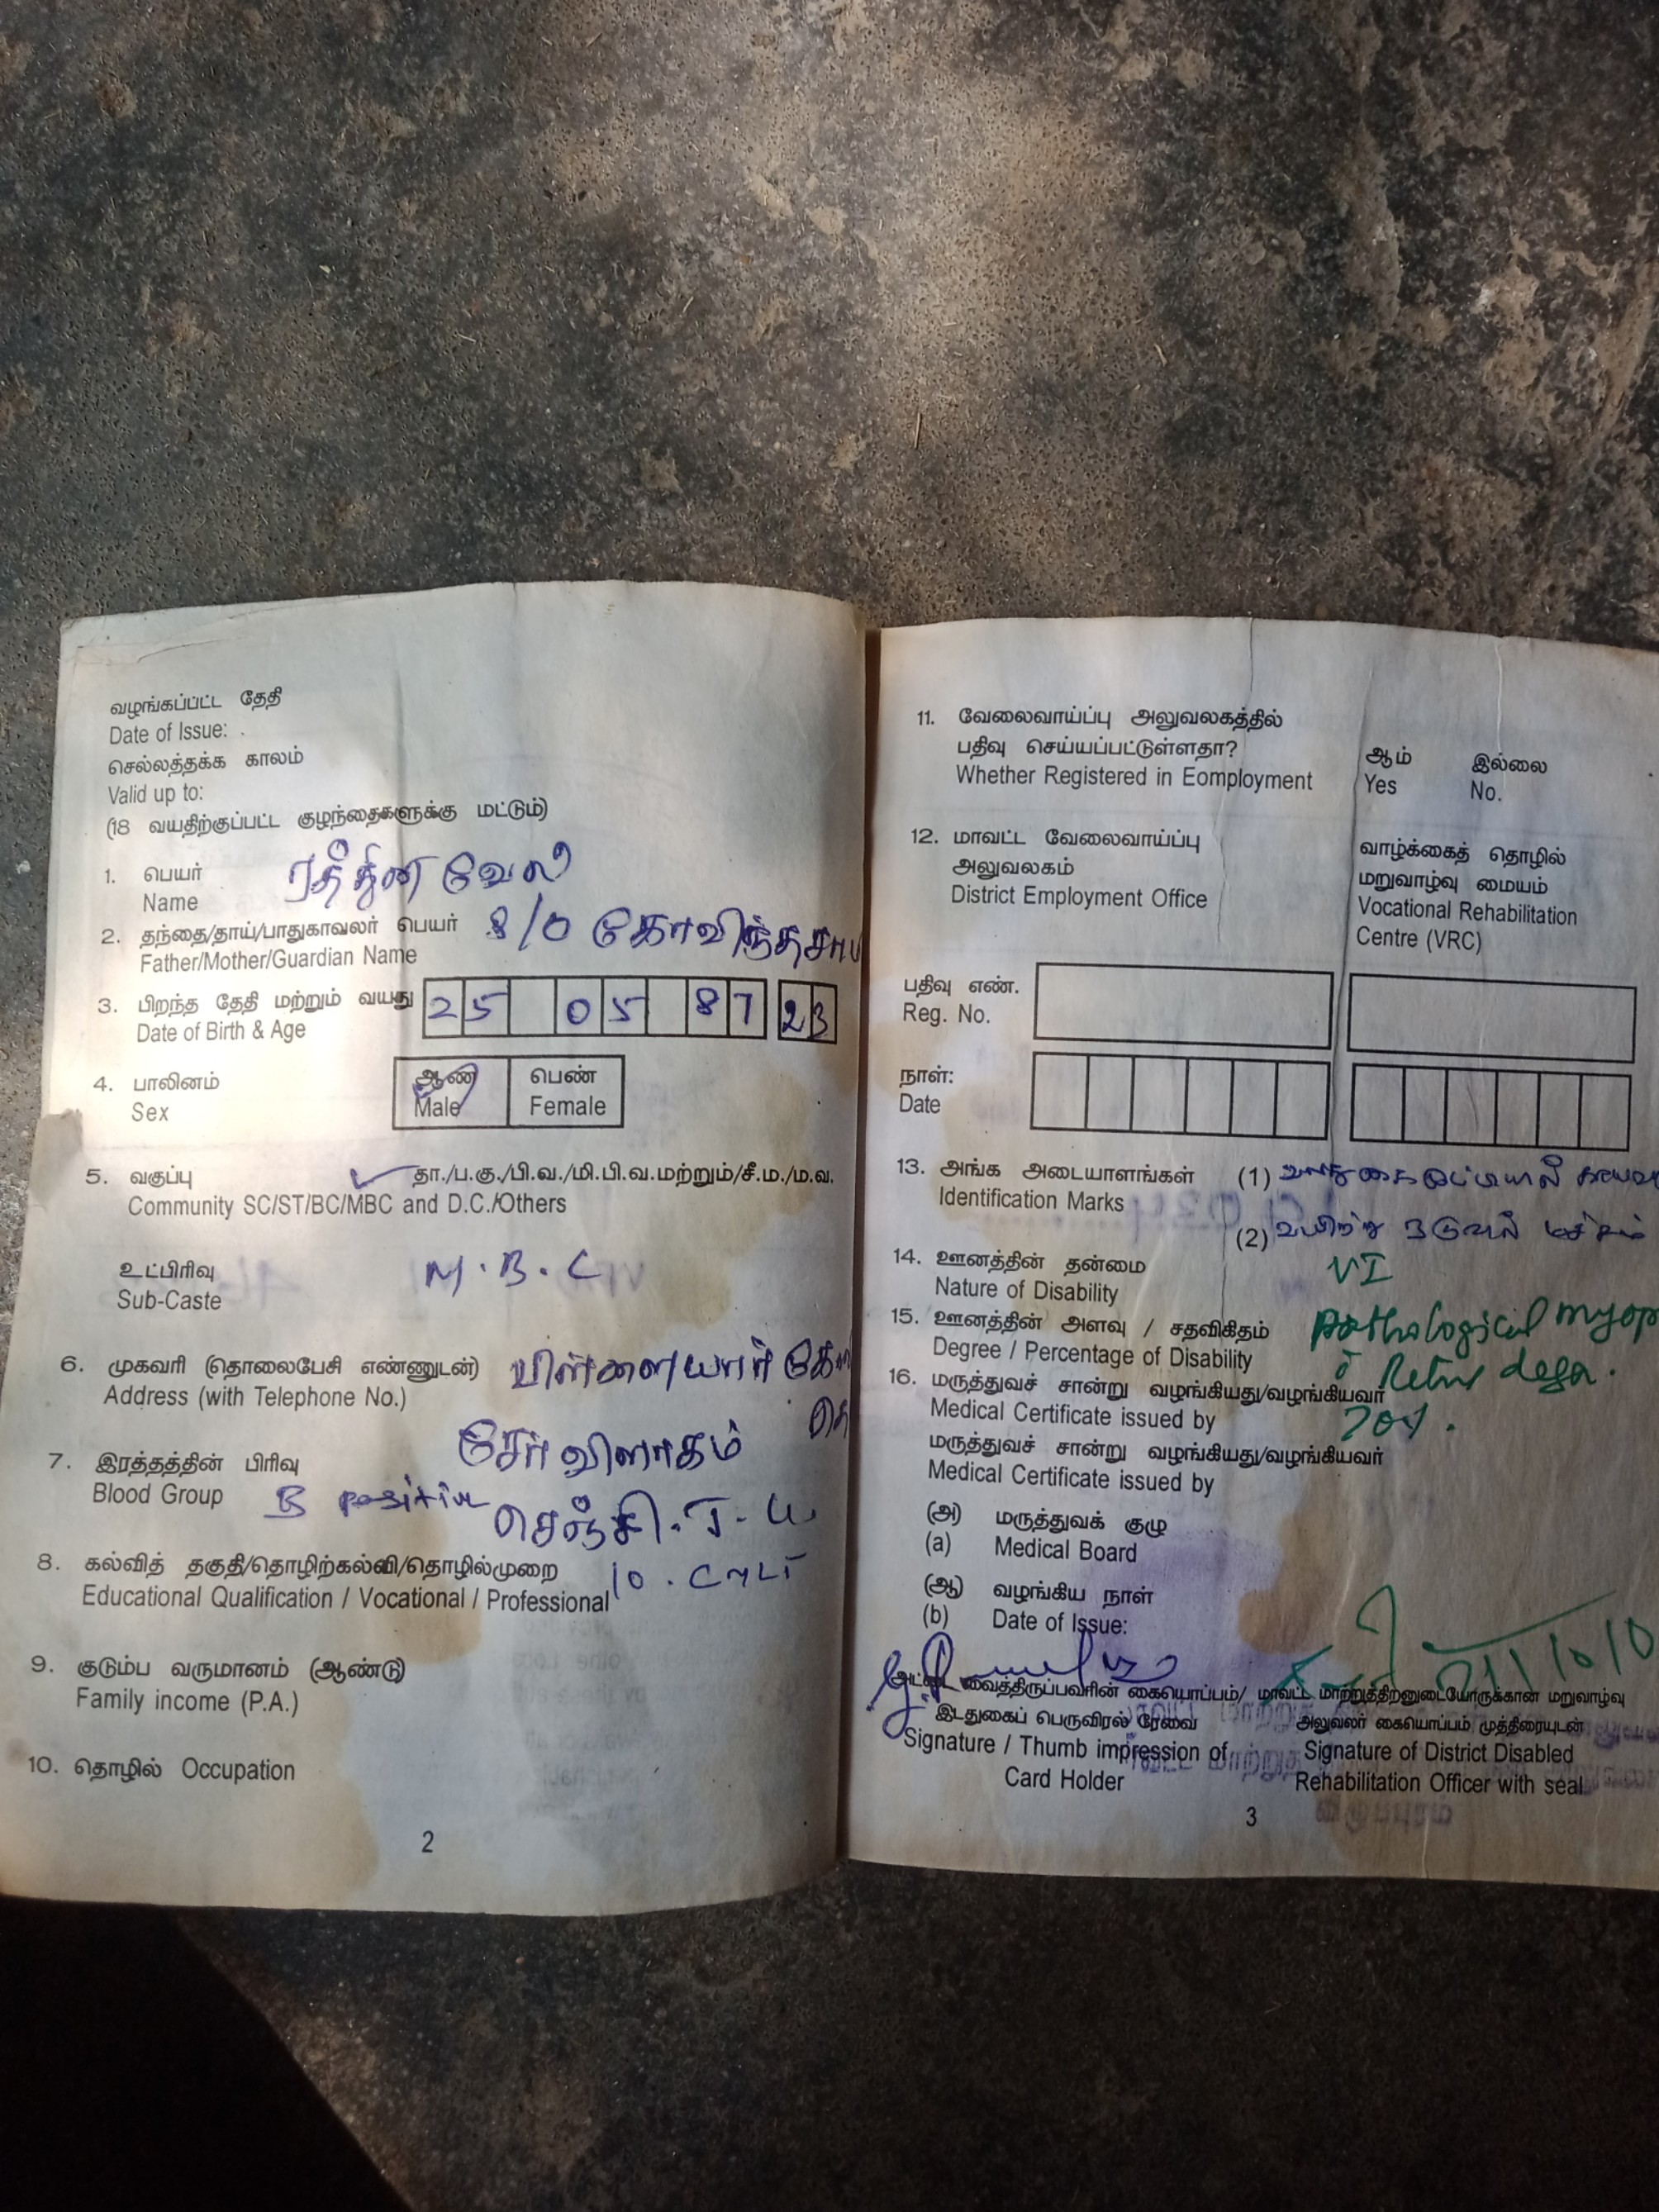 வழங்கப்பட்ட தேதி
Date of Issue:
செல்லத்தக்க காலம்
Valid up to:
(18 வயதிற்குப்பட்ட குழந்தைகளுக்கு மட்டும்)
1. பெயர் ரத்தின வேல்
Name
2. தந்தை/தாய்/பாதுகாவலர் பெயர் S/O கோவிந்தசாமி
Father/Mother/Guardian Name
3. பிறந்த தேதி மற்றும் வயது 25 05 87 23
Date of Birth & Age
4. பாலினம் ஆண் பெண்
Sex Male Female
5. வகுப்பு தா./ப.கு./பி.வ./மி.பி.வ.மற்றும்/சீ.ம./ம.வ.
Community SC/ST/BC/MBC and D.C./Others
உட்பிரிவு M.B.C
Sub-Caste
6. முகவரி (தொலைபேசி எண்ணுடன்) பிள்ளையார்
Address (with Telephone No.)
சேர் விளாகம்
7. இரத்தத்தின் பிரிவு
Blood Group B positive செஞ்சி. T.
8. கல்வித் தகுதி/தொழிற்கல்வி/தொழில்முறை 10.
Educational Qualification / Vocational / Professional
9. குடும்ப வருமானம் (ஆண்டு)
Family income (P.A.)
10. தொழில் Occupation
2
11. வேலைவாய்ப்பு அலுவலகத்தில்
பதிவு செய்யப்பட்டுள்ளதா? ஆம் இல்லை
Whether Registered in Eomployment Yes No.
12. மாவட்ட வேலைவாய்ப்பு வாழ்க்கைத் தொழில்
அலுவலகம் மறுவாழ்வு மையம்
District Employment Office Vocational Rehabilitation
Centre (VRC)
பதிவு எண்.
Reg. No.
நாள்:
Date
13. அங்க அடையாளங்கள் (1)
Identification Marks
(2) வயிற்று நடுவில் மச்சம்
14. ஊனத்தின் தன்மை VI
Nature of Disability
15. ஊனத்தின் அளவு / சதவிகிதம் pathological myop
Degree / Percentage of Disability
16. மருத்துவச் சான்று வழங்கியது/வழங்கியவர்
Medical Certificate issued by 70%.
மருத்துவச் சான்று வழங்கியது/வழங்கியவர்
Medical Certificate issued by
(அ) மருத்துவக் குழு
(a) Medical Board
(ஆ) வழங்கிய நாள்
(b) Date of Issue:
அட்டை வைத்திருப்பவரின் கையொப்பம்/ மாவட்ட மாற்றுத்திறனுடையோருக்கான மறுவாழ்வு
இடதுகைப் பெருவிரல் ரேகை அலுவலர் கையொப்பம் முத்திரையுடன்
Signature / Thumb impression of Signature of District Disabled
Card Holder Rehabilitation Officer with seal
3